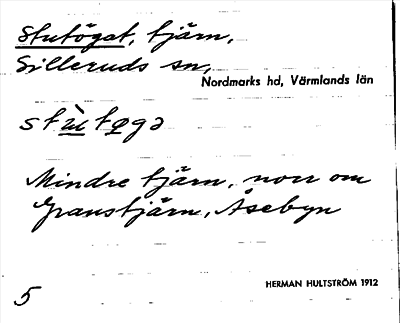 Stutögat, tjärn,
Silleruds sn,
Nordmarks hd, Värmlands län
Mindre tjärn, norr om
Granstjärn, Åsebyn
5
HERMAN HULTSTRÖM 1912